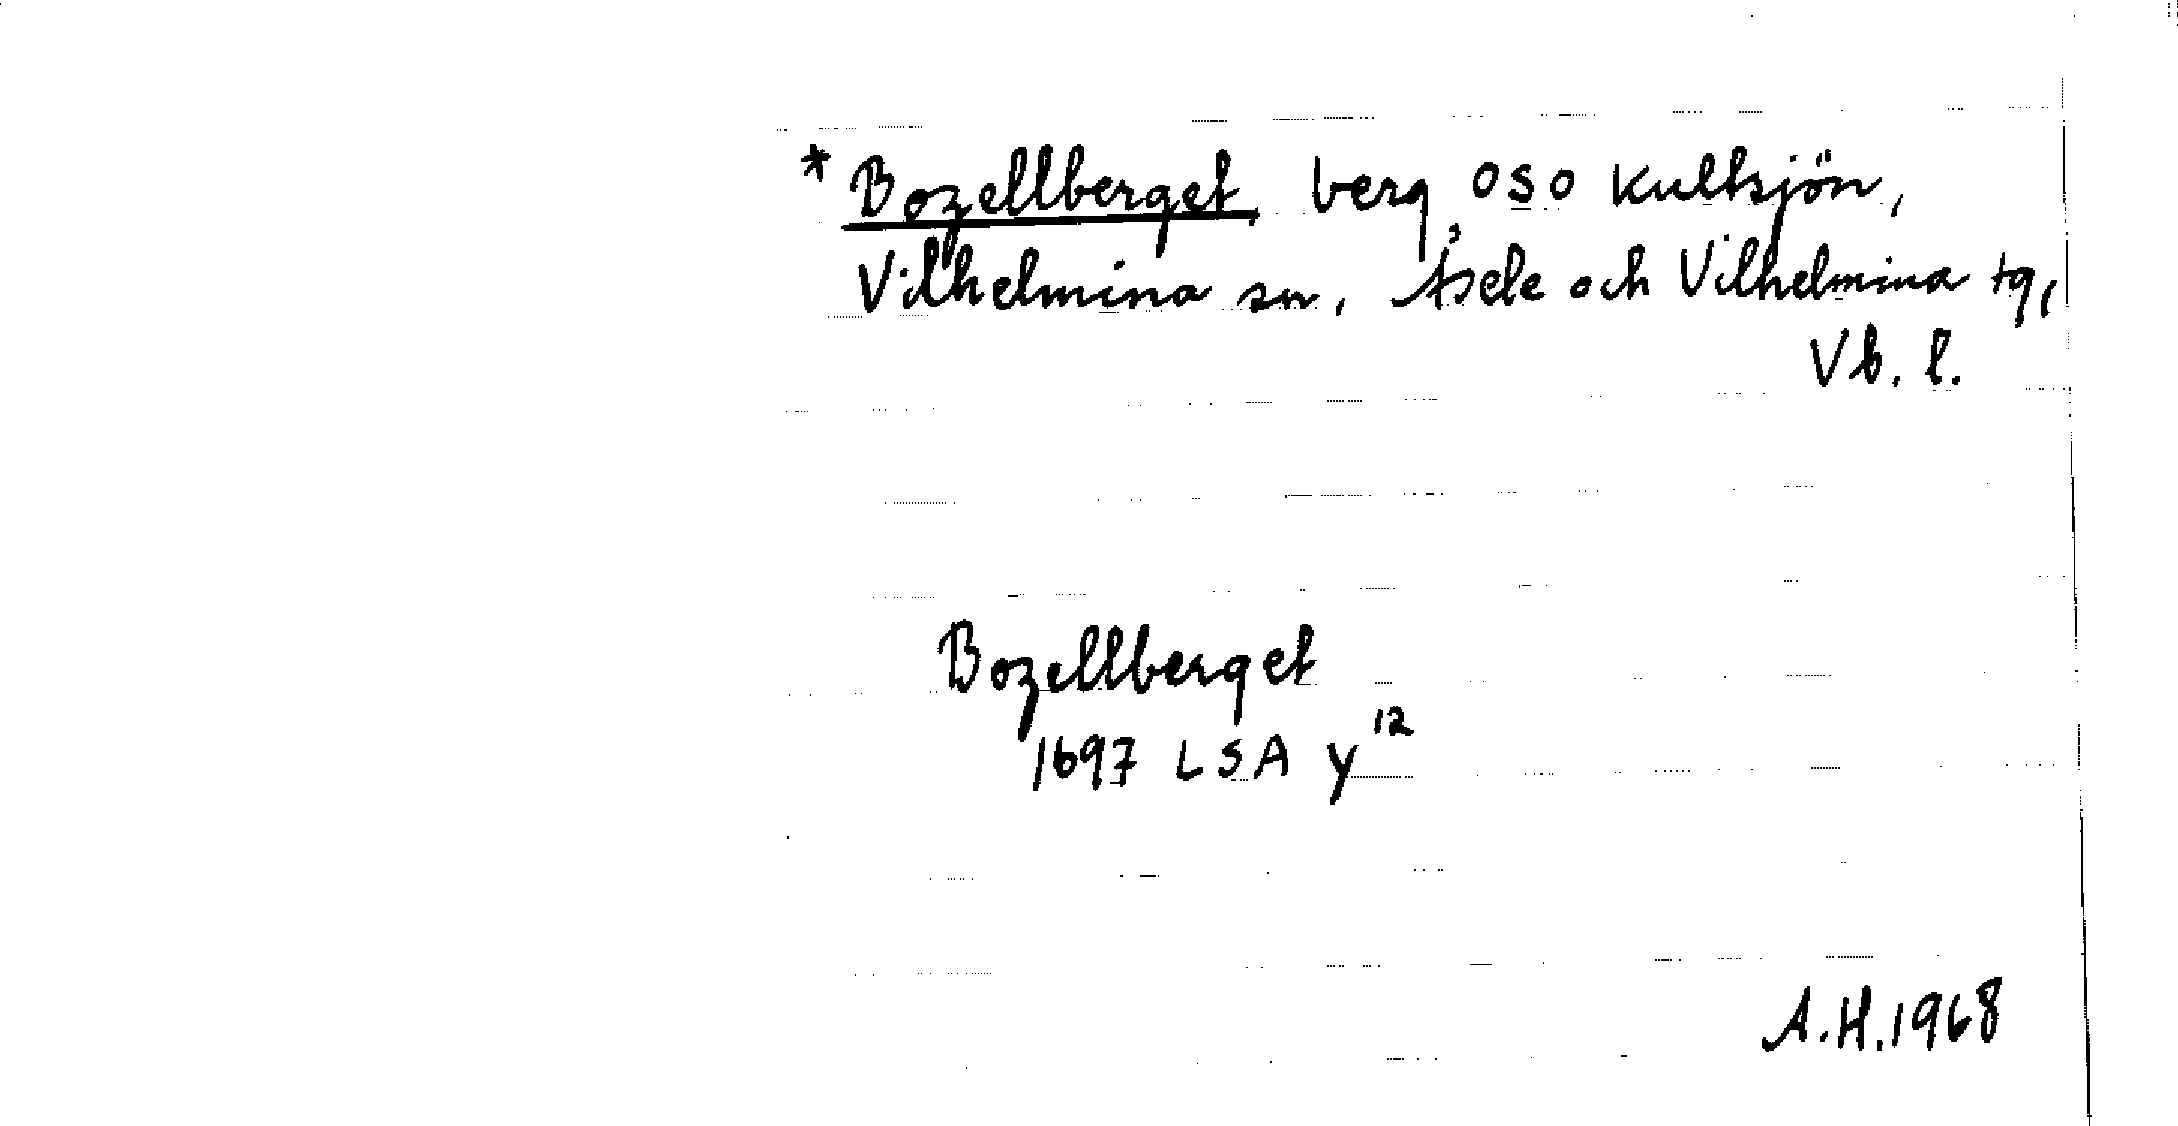 * Bozellberget, berg OSO Kultsjön,
Vilhelmina sn, Åsele och Vilhelmina tg,
Vb. l.
Bozellberget
1697 LSA Y¹²
A.H. 1968